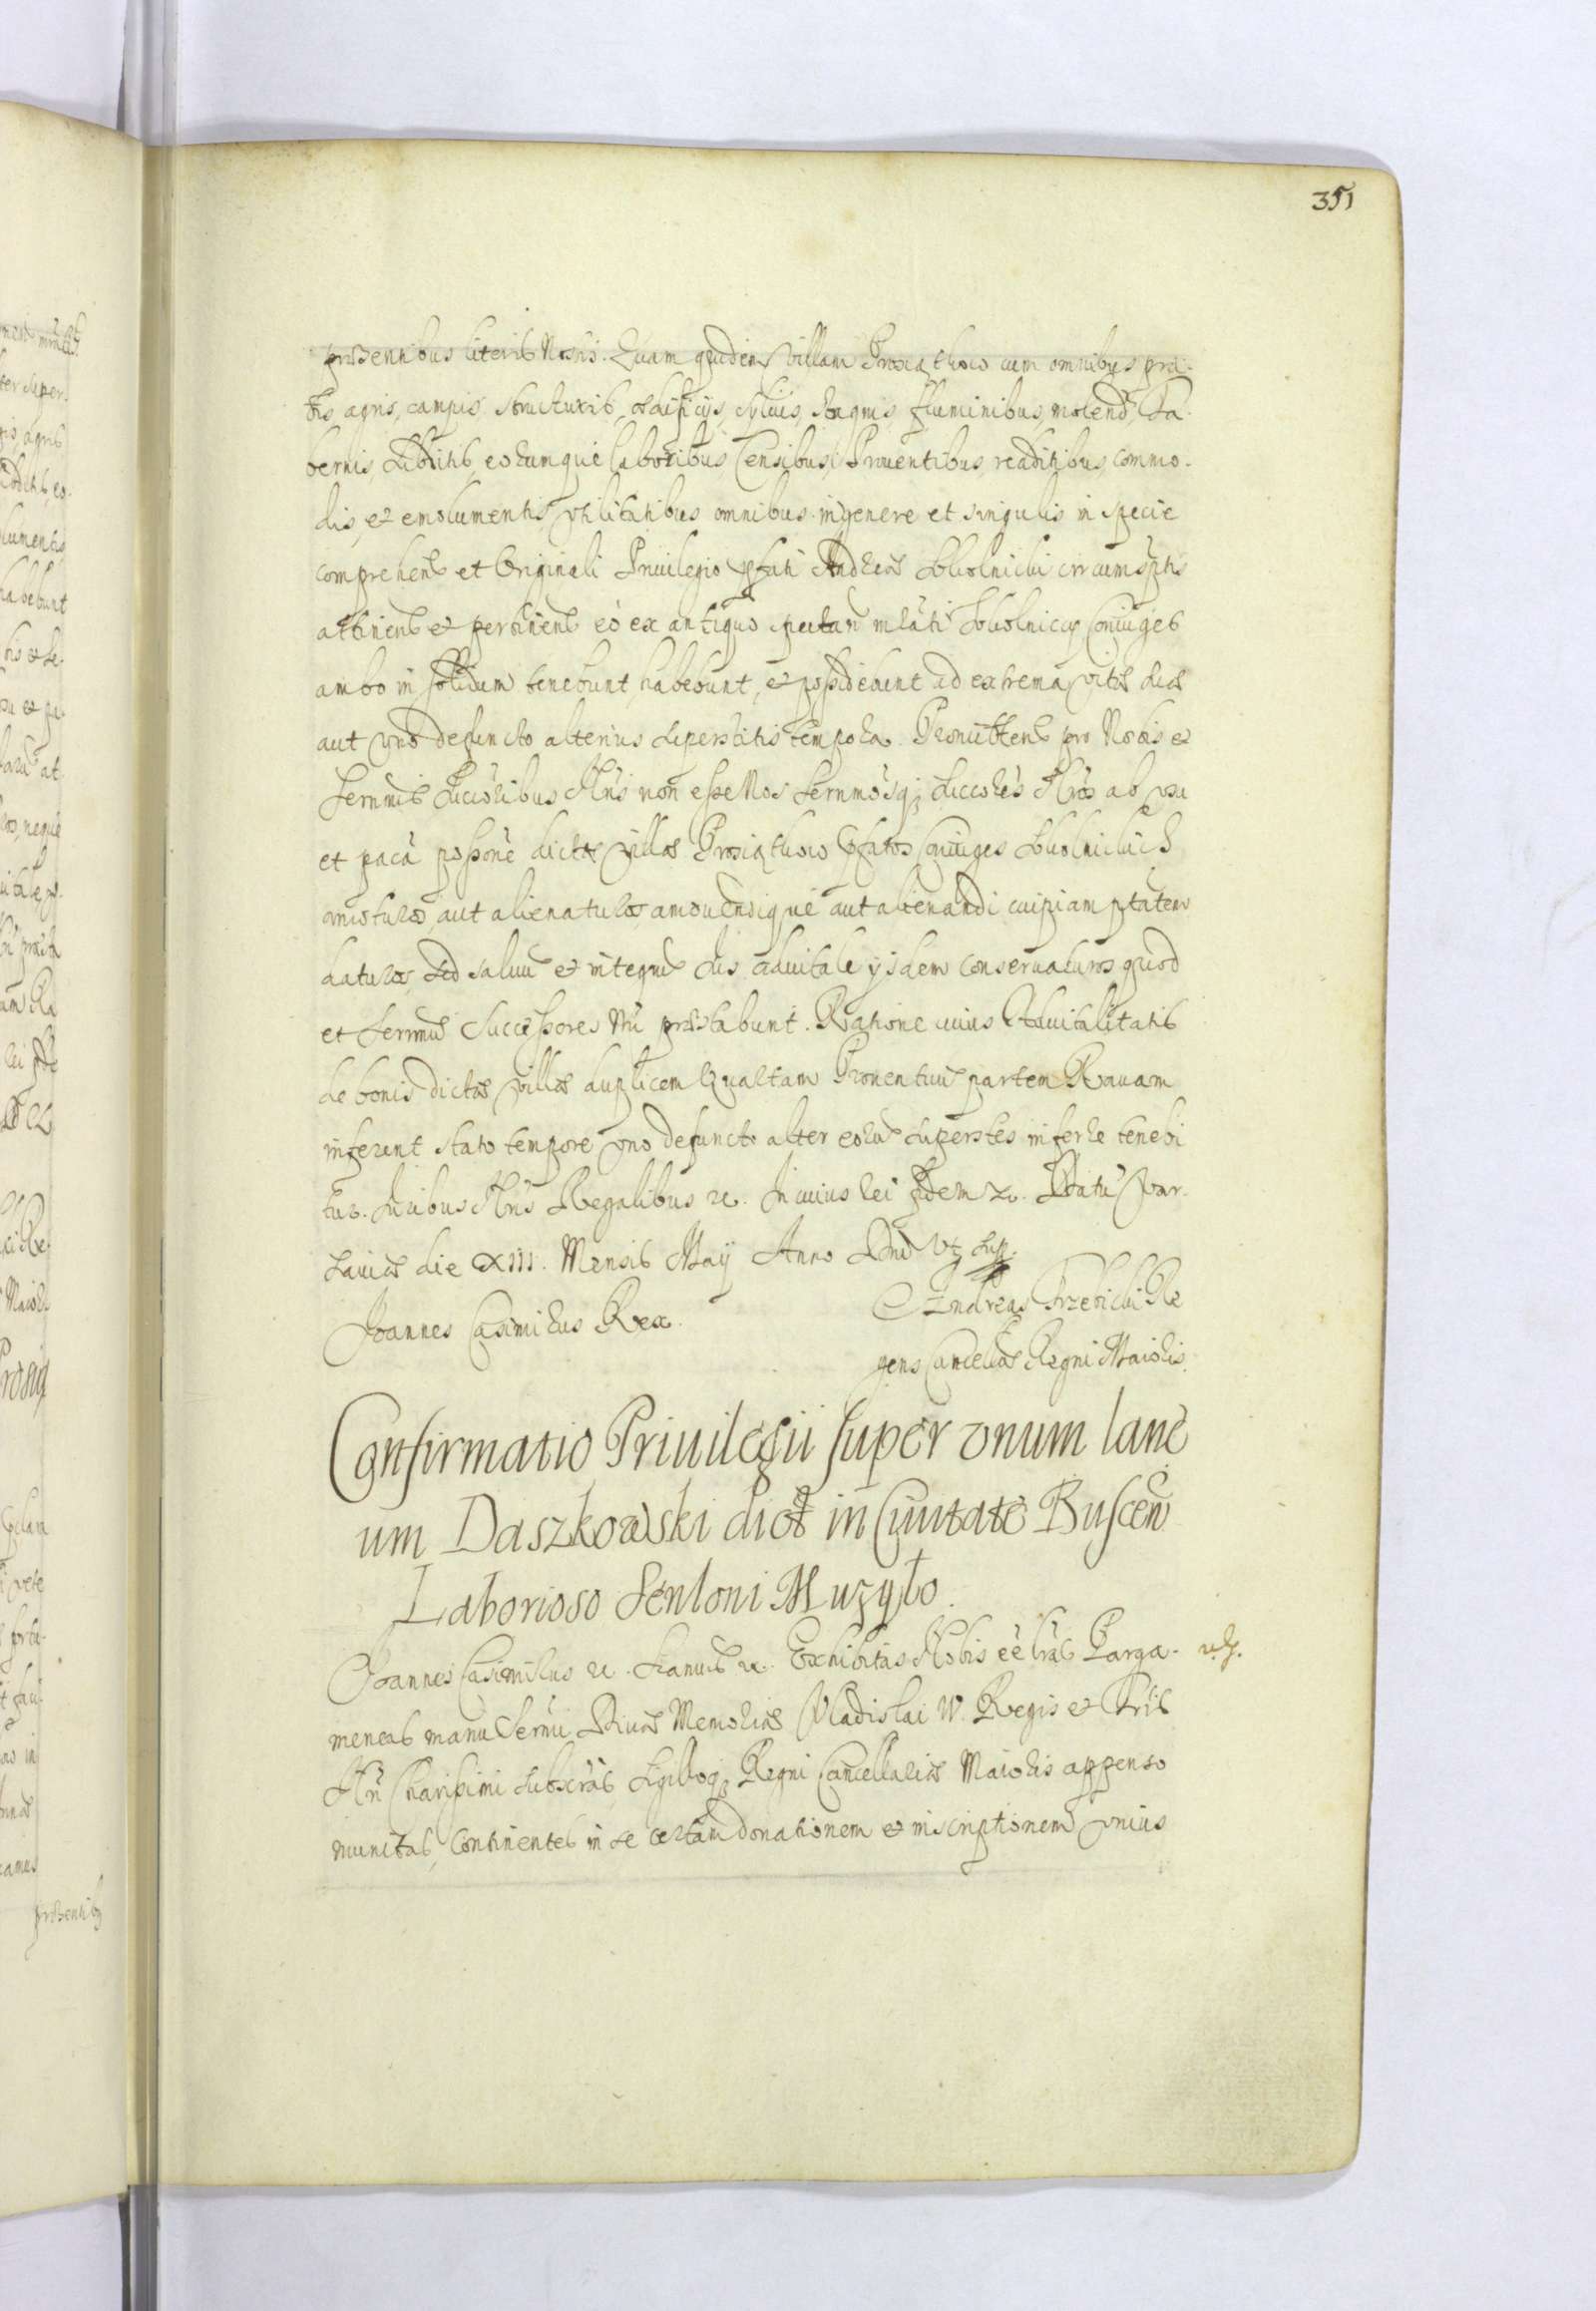 351
præsentibus literis Nostris. Quam quidem Villam Prosiąthow cum omnibus pra-
tis agris, campis, structuris, ædificijs, syluis, stagnis, fluminibus, molend: Ta-
bernis, subditis, eorumque laboribus Censibus, Prouentibus, reditibus, commo-
dis, et emolumentis, vtilitatibus omnibus in genere et singulis in specie
comprehens et Originali Priuilegio pfati Andreæ circumsptis
attinens et pertinens eo ex antiquo spectan mlati Coniuges
ambo in solidum tenebunt, habebunt, et possidebunt ad extrema vitæ suæ
aut vno defuncto alterius superstitis tempora. Promitten pro Nobis et
Sernmis Succoribus Nris non esse Nos Sernmosq; Succores Nros ab vsu
et paca possone dictæ villæ Prosiąthow pfatos Coniuges
amoturos, aut alienaturos, amouendique aut alienandi cuipiam ptatem
daturos, Sed saluu et integru Ius aduitale ijsdem conseruaturos quod
et Sernmi Successores Nri præstabunt. Ratione cuius Aduitalitatis
de bonis dictæ villæ duplicem Quartam Prouentuu partem Rauam
inferent stato tempore vno defuncto alter eoru superstes inferre tenebi
tur. Iuribus Nris Regalibus &c. In cuius rei fidem &c. Datu Var-
sauiæ die XIII. Mensis Maij Anno Dni vt sup.
Joannes Casimirus Rex.
Andreas Trzebicki Re
gens Cancellæ Regni Maioris.
Confirmatio Priuilegii super vnum lane
um Daszkowski dict in Ciuitate Buscen
Laborioso Senkoni Muzyło.
Joannes Casimirus &c. Sianus &c. Exhibitas Nobis ee lras Parga-
meneas manu Sernmi Diuæ Memoriæ Vladislai IV. Regis et Fris
Nri Charissimi subscras, Sigilloq; Regni Cancellariæ Maioris appenso
munitas, continentes in se certam donationem et inscriptionem vnius